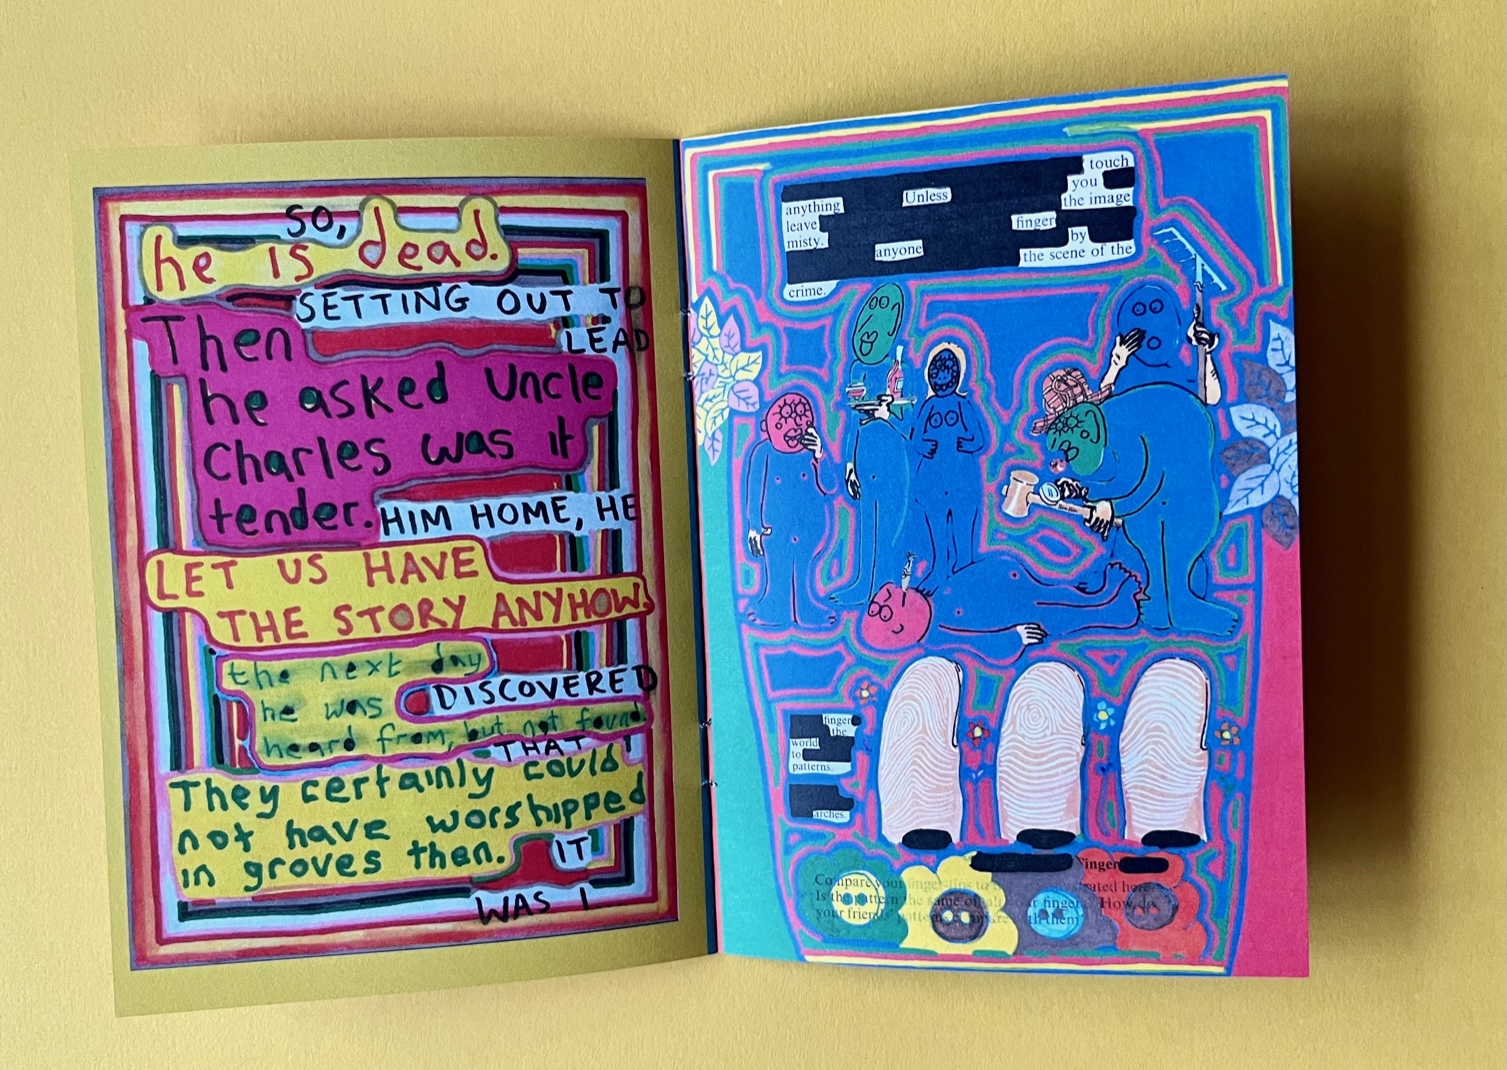 so,
he is dead.
SETTING OUT TO
Then LEAD
he asked Uncle
Charles was it
tender. HIM HOME, HE
LET US HAVE
THE STORY ANYHOW.
the next day
he was DISCOVERED
heard from, but not found.
THAT I
They certainly could
not have worshipped
in groves then.
IT
WAS I
touch
Unless you
anything the image
leave finger
misty. by
anyone the scene of the
crime.
finger
the
world
to
patterns.
arches.
Finger
Compare your finger-tips to illustrated here.
Is the pattern the same of all your fingers? How do
your friends' patterns compare with them